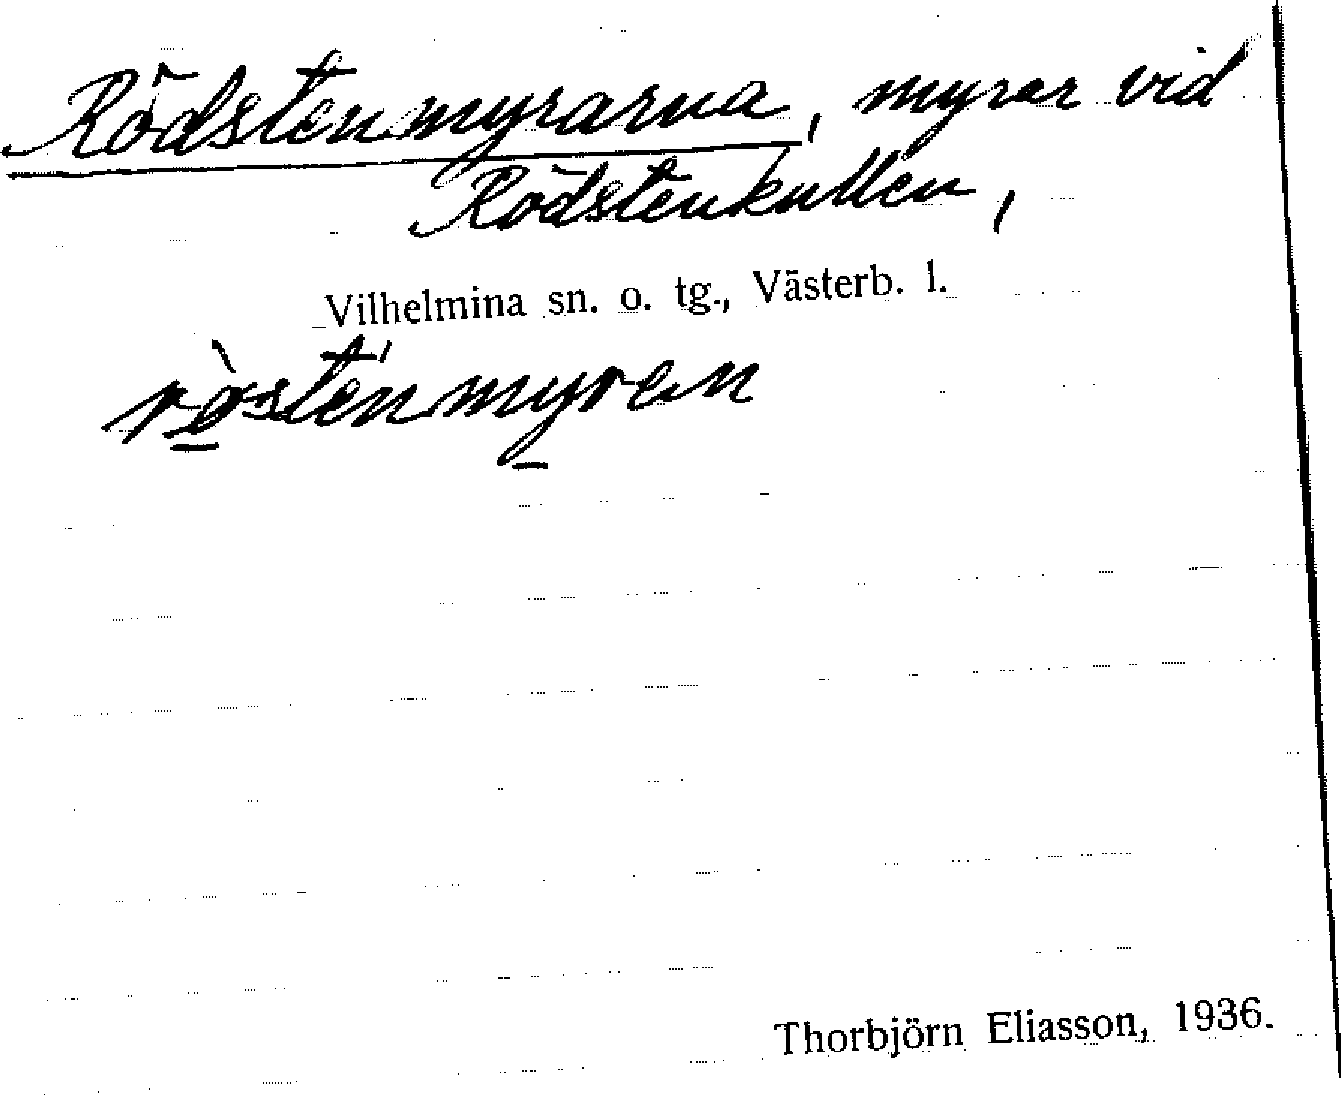 Rödstenmyrarna, myrar vid
Rödstenkullen,
Vilhelmina sn. o. tg., Västerb. l.
rø̀sténmyren
Thorbjörn Eliasson, 1936.